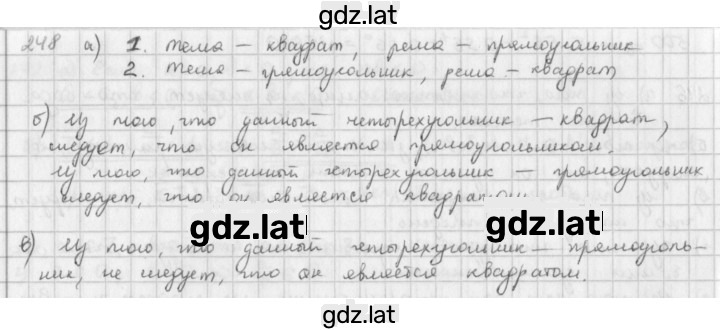 gdz.lat
248 а) 1. тема – квадрат, рема – прямоугольник
2. тема – прямоугольник, рема – квадрат
б) Из того, что данный четырехугольник – квадрат,
следует, что он является прямоугольником.
Из того, что данный четырехугольник – прямоугольник
следует, что он является квадратом
gdz.lat gdz.lat
в) Из того, что данный четырехугольник – прямоуголь-
ник, не следует, что он является квадратом.
gdz.lat